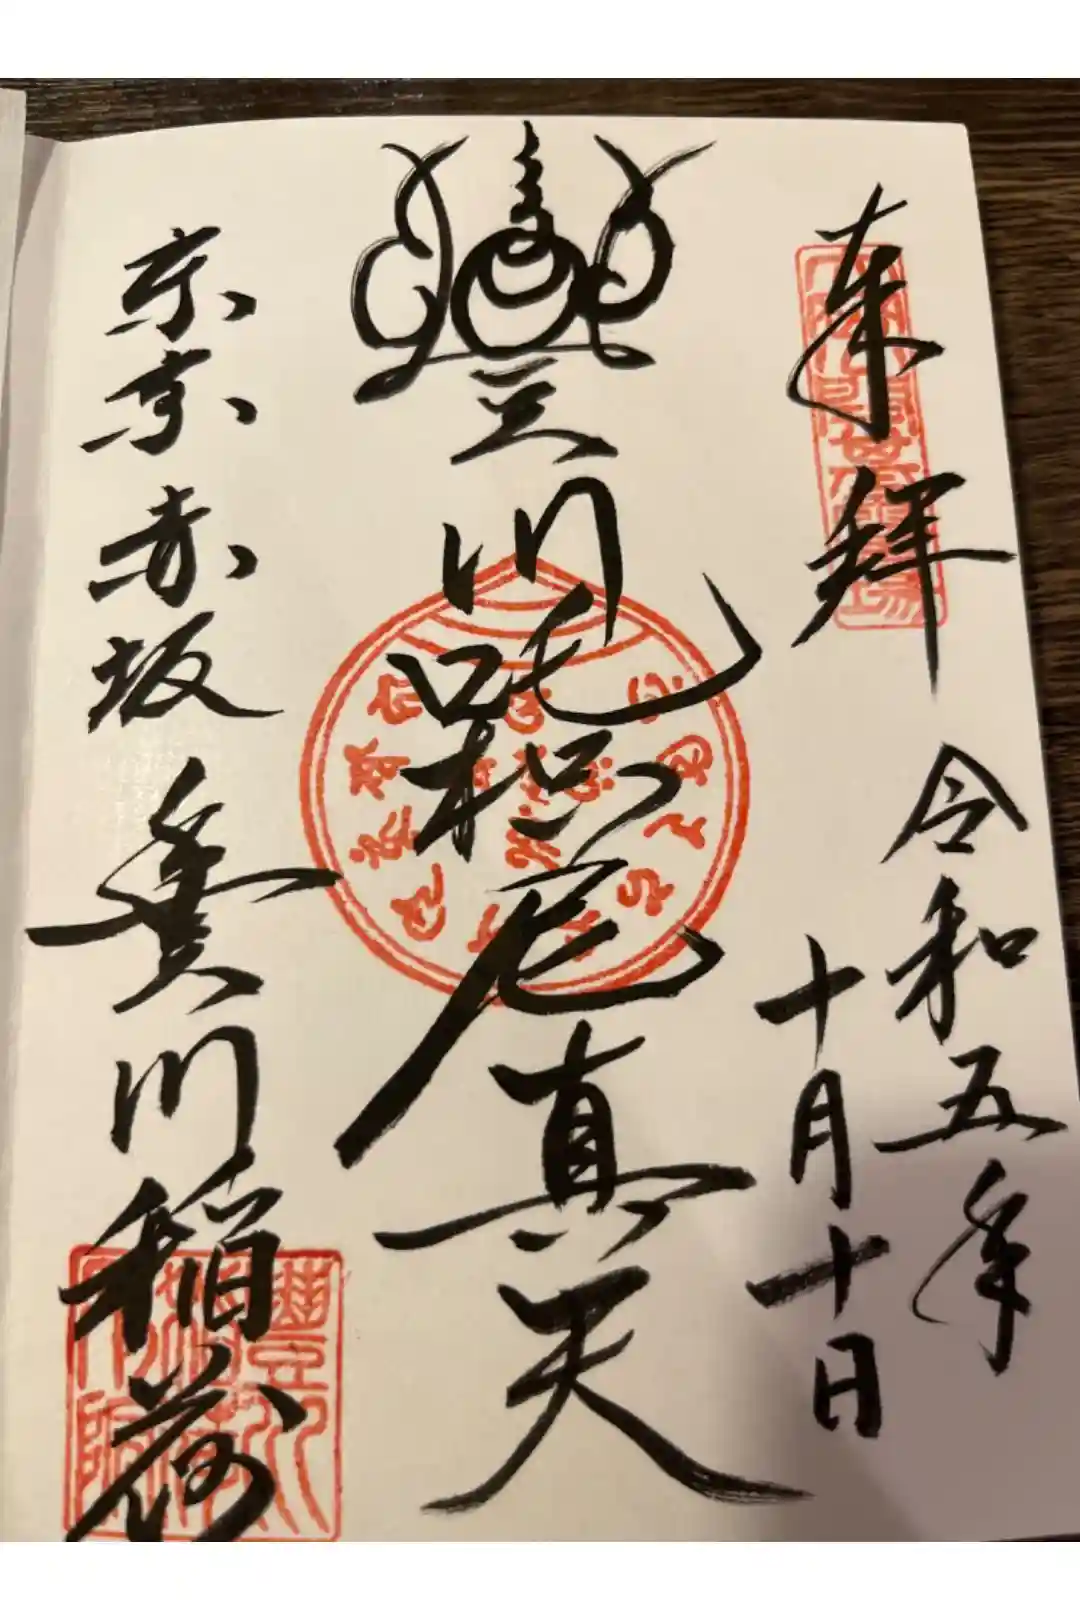 奉拝
令和五年
十月十日
豊川吒枳尼真天
東京赤坂豊川稲荷